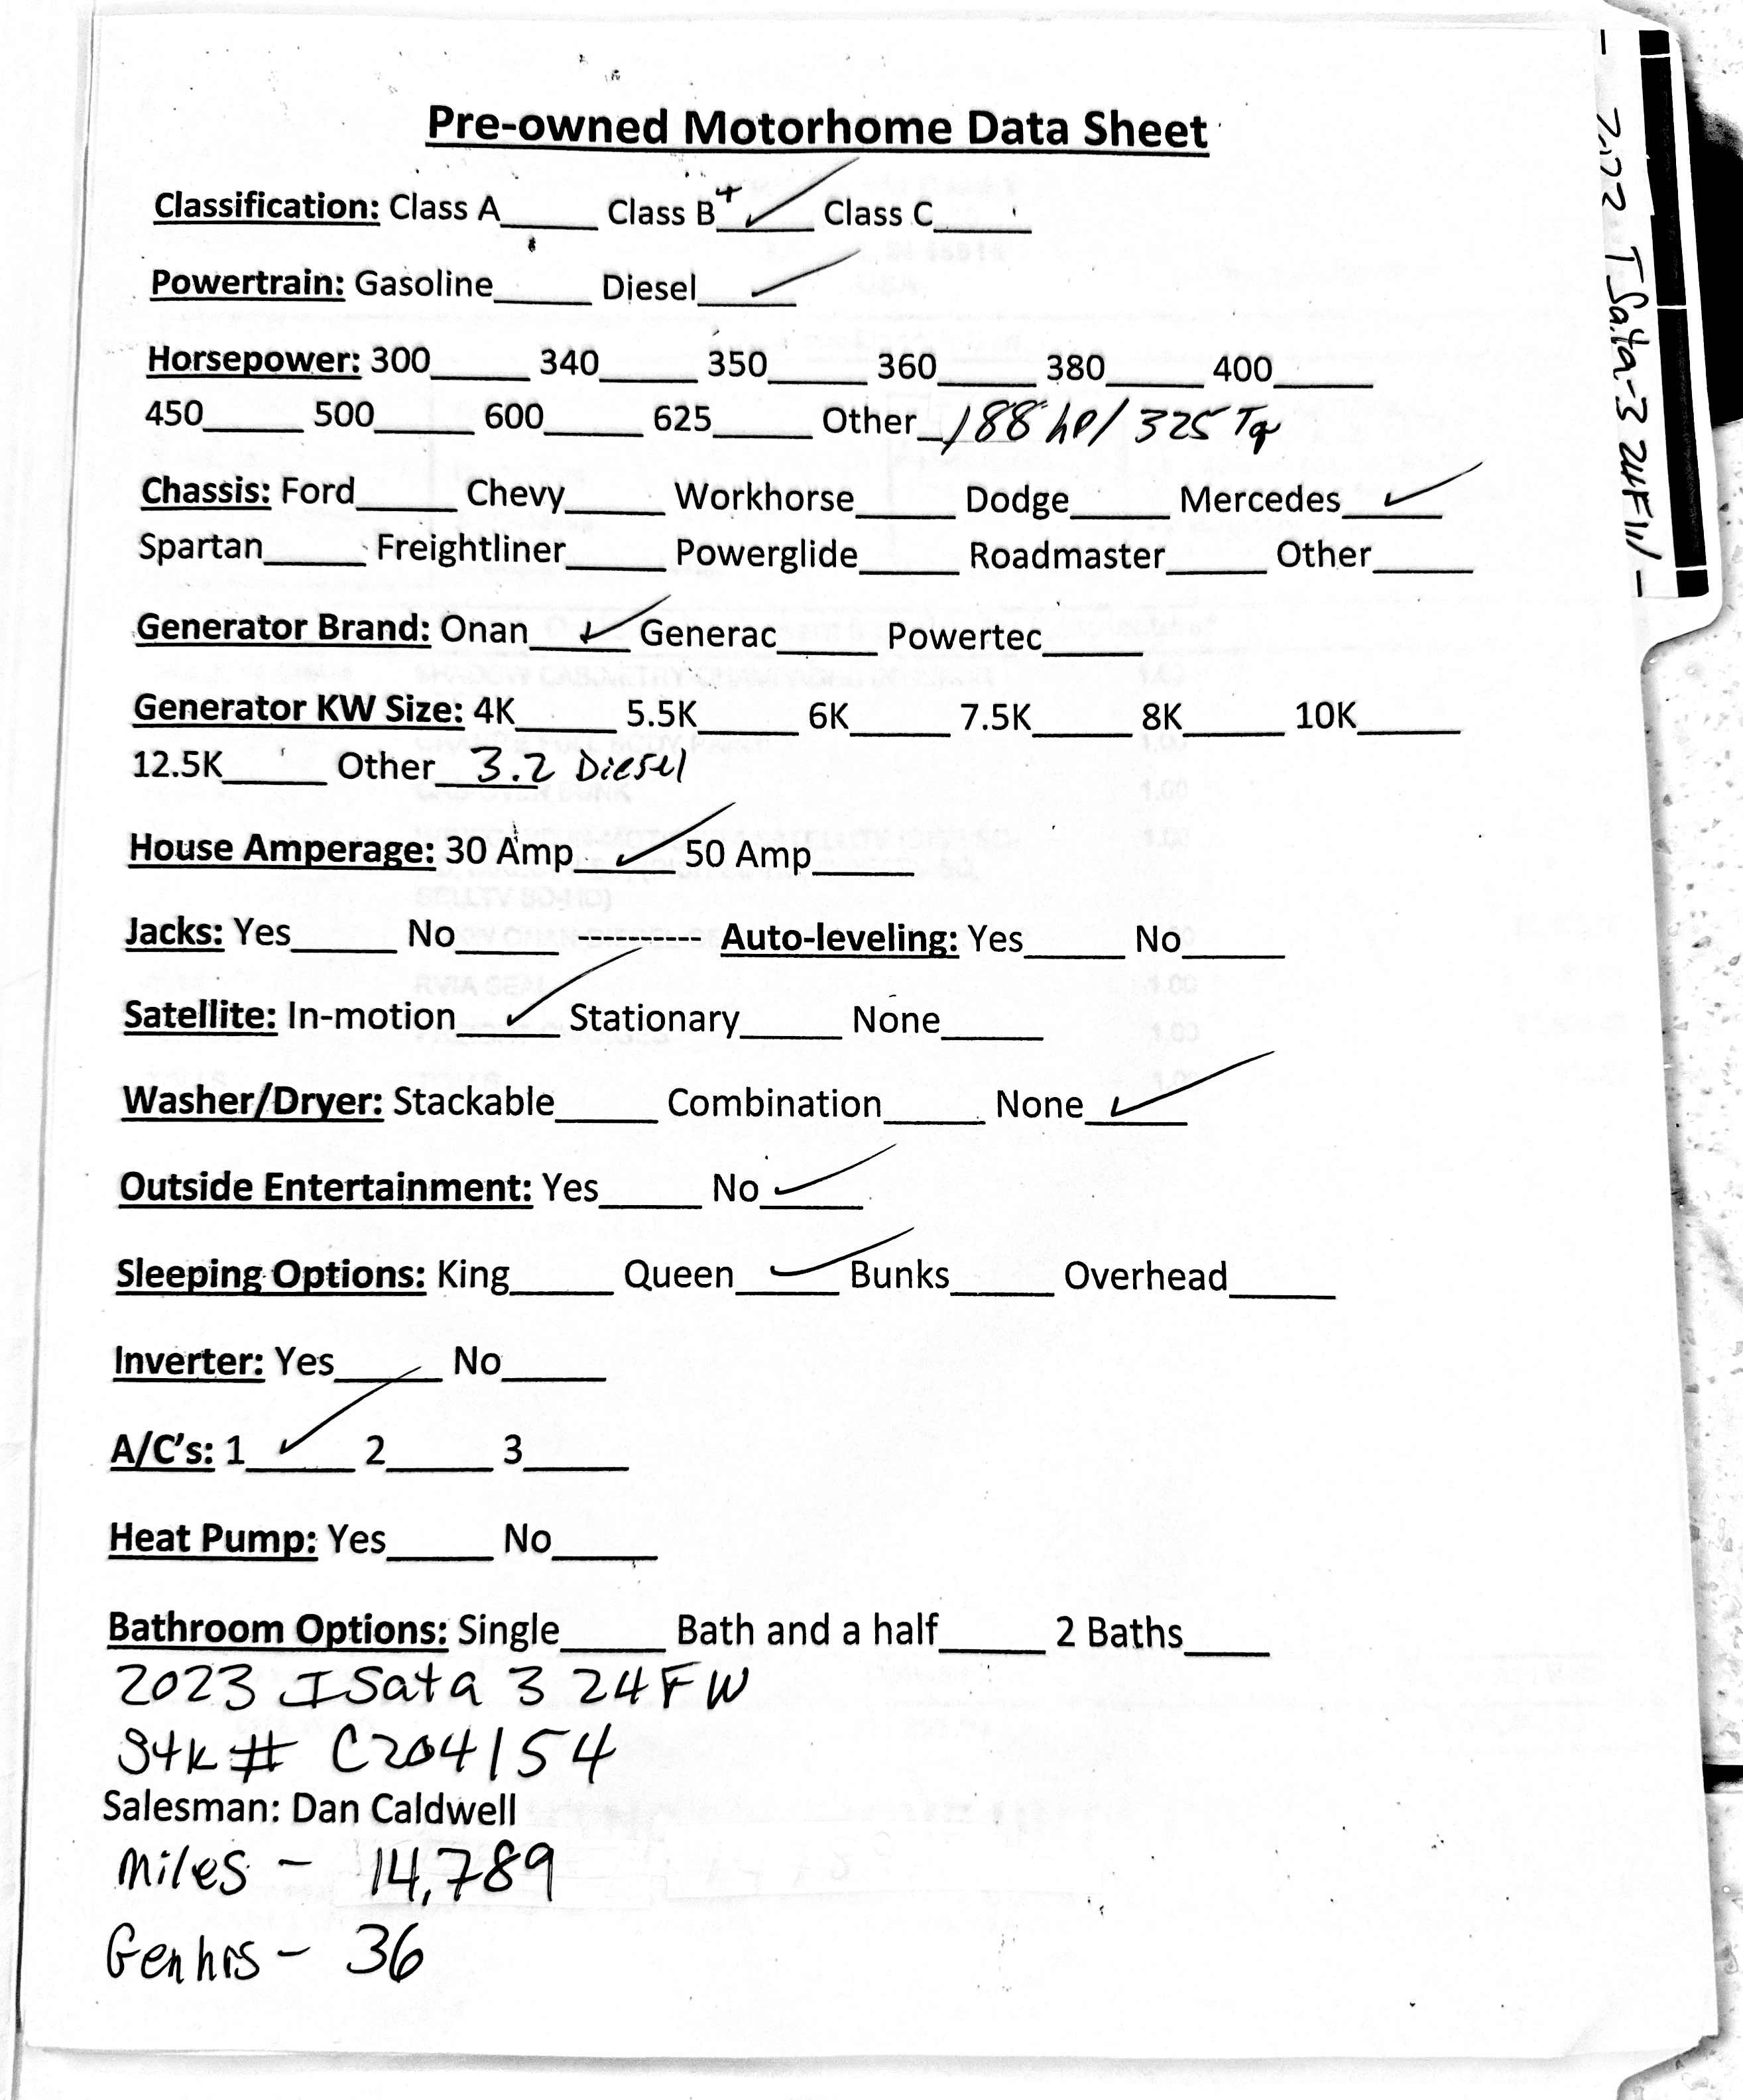 Pre-owned Motorhome Data Sheet
Classification: Class A_____ Class B+ ✓ Class C_____
Powertrain: Gasoline_____ Diesel ✓
Horsepower: 300_____ 340_____ 350_____ 360_____ 380_____ 400_____
450_____ 500_____ 600_____ 625_____ Other 188 hp/ 325 Tq
Chassis: Ford_____ Chevy_____ Workhorse_____ Dodge_____ Mercedes ✓
Spartan_____ Freightliner_____ Powerglide_____ Roadmaster_____ Other_____
Generator Brand: Onan ✓ Generac_____ Powertec_____
Generator KW Size: 4K_____ 5.5K_____ 6K_____ 7.5K_____ 8K_____ 10K_____
12.5K_____ Other 3.2 Diesel
House Amperage: 30 Amp ✓ 50 Amp_____
Jacks: Yes_____ No_____ ---------- Auto-leveling: Yes_____ No_____
Satellite: In-motion ✓ Stationary_____ None_____
Washer/Dryer: Stackable_____ Combination_____ None ✓
Outside Entertainment: Yes_____ No ✓
Sleeping Options: King_____ Queen ✓ Bunks_____ Overhead_____
Inverter: Yes_____ No_____
A/C's: 1 ✓ 2_____ 3_____
Heat Pump: Yes_____ No_____
Bathroom Options: Single_____ Bath and a half_____ 2 Baths_____
2023 ISata 3 24FW
Stk# C204154
Salesman: Dan Caldwell
Miles - 14,789
Gen hrs - 36
ISata-3 24FW